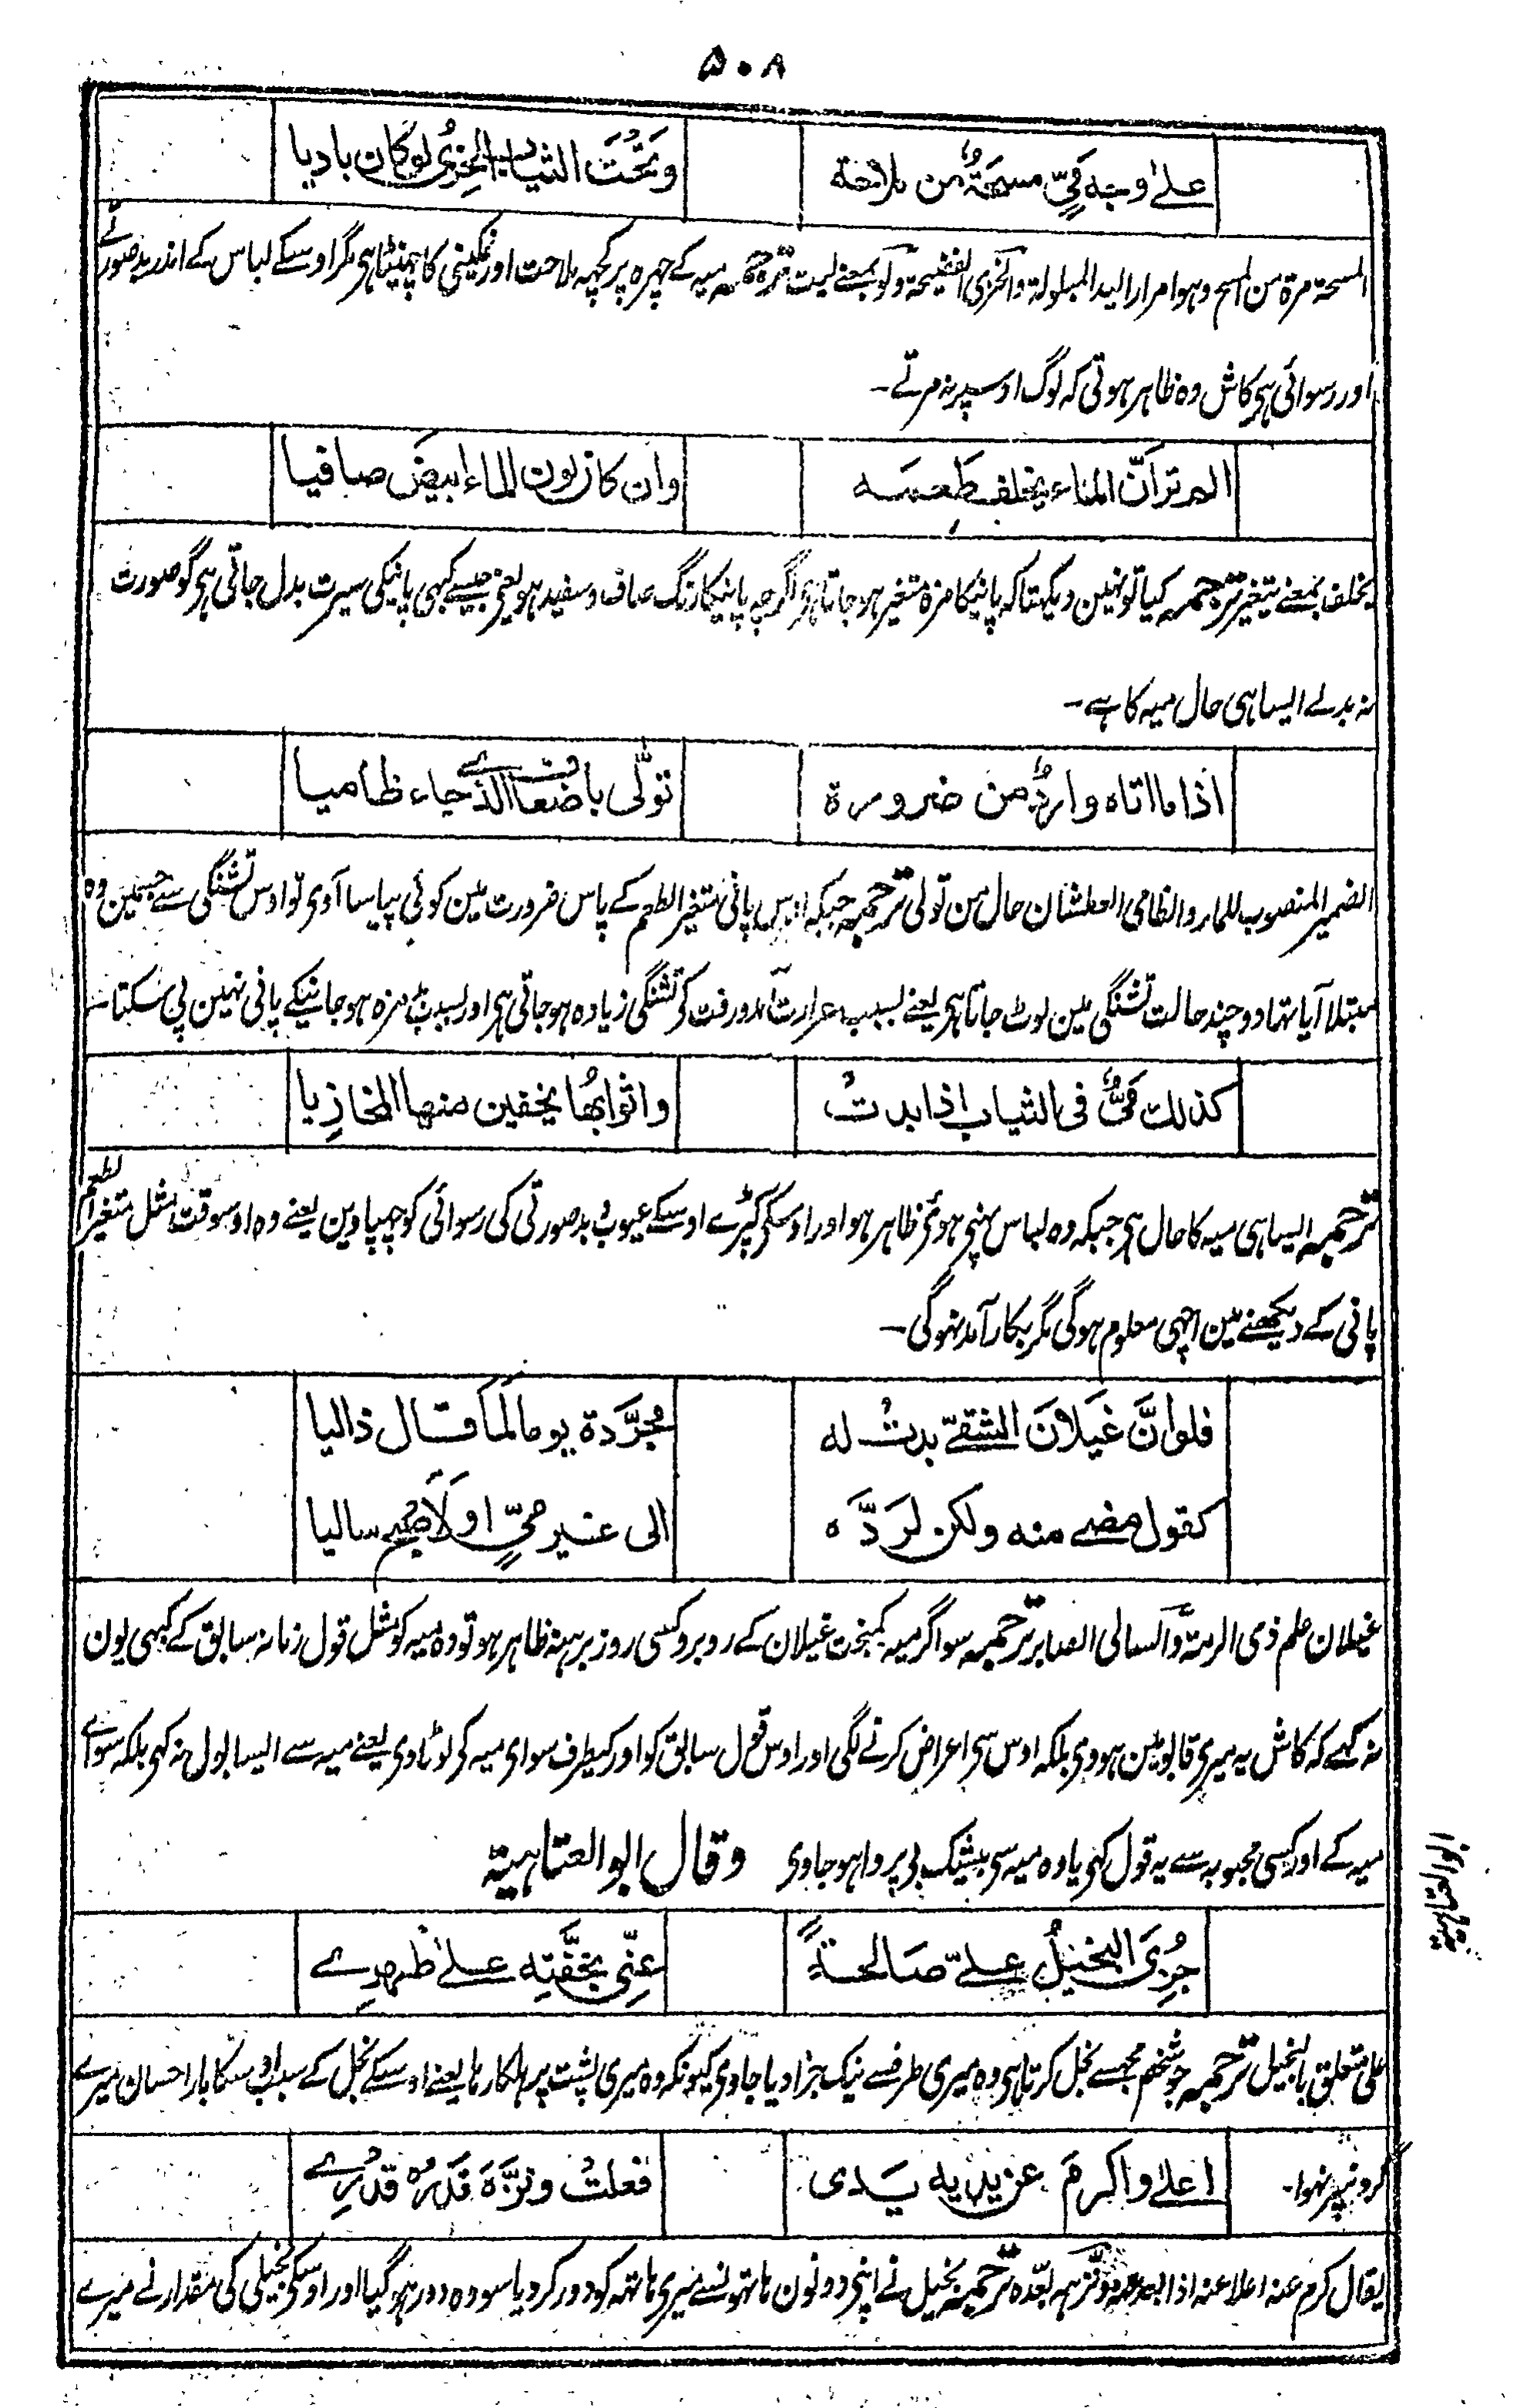 ۵۰۸
علے وجه مَيٍّ مسحَةٌ من ملاحة وَتَحْتَ الثياب الخِزْیُ لو کان بادیا
المسحة مرة من المسح وہوا مرار الید المبلولة والخزی الفضیحة ولو بمعنے لیت ترجمہ میہ کے چہرہ پر کچہہ ملاحت اور نمکینی کا چہینٹا ہی مگر اوسکے لباس کے اندر بدصورتے
اور رسوائی ہی کاش وہ ظاہر ہوتی کہ لوگ اوسپر نہ مرتے۔
الم تر انّ الماء یخلف طَعمَه وان کان لون الماء ابیضَ صافیا
یخلف بمعنے یتغیر ترجمہ کیا تو نہین دیکہتا کہ پانیکا مزہ متغیر ہو جاتا ہی اگرچہ پانیکا رنگ صاف و سفید ہو یعنی جیسے کبہی پانیکی سیرت بدل جاتی ہی گو صورت
نہ بدلے ایسا ہی حال میہ کا ہے۔
اذا ما اتاه واردٌ من ضرورة تولّى باضعاف الذے جاء ظامیا
الضمیر المنصوب للماء والظامی العطشان حال من تولی ترجمہ جبکہ اوس پانی متغیر الطعم کے پاس ضرورت مین کوئی پیاسا آوی تو اوس تشنگی سے جسمین وہ
مبتلا آیا تہا دو چند حالت تشنگی مین لوٹ جاتا ہی یعنے بسبب حرارت آمد و رفت کی تشنگی زیادہ ہو جاتی ہی اور بسبب بے مزہ ہو جانیکے پانی نہین پی سکتا
کذلك مَيٌّ فی الثیاب اذا بدتْ واثوابُها یخفین منها المخازِیا
ترجمہ ایسا ہی میہ کا حال ہی جبکہ وہ لباس پہنی ہوئی ظاہر ہو اور اوسکی کپڑے اوسکے عیوب و بدصورتی کی رسوائی کو چہپا دین یعنے وہ اوسوقت مثل متغیر الطعم
پانی کے دیکھنے مین اچہی معلوم ہوگی مگر بکار آمد نہوگی۔
فلو انَّ غَيلانَ الشقيّ بدتْ له مُجرَّدة یوما لما قال ذا لیا
کقول مضے منه ولکن لرَدَّه الى غیر مَيٍّ او لَاَصْبَحَ سالیا
غیلان علم ذی الرمة والسالی الصابر ترجمہ سو اگر میہ کمبخت غیلان کے روبرو کسی روز برہنہ ظاہر ہو تو وہ میہ کو مثل قول زمانہ سابق کے کبہی یون
نہ کہے کہ کاش یہ میری قابو مین ہووی بلکہ اوس سی اعراض کرنے لگی اور اوس قول سابق کو اور کیطرف سوای میہ کی لوٹا دی یعنے میہ سے ایسا بول نہ کہی بلکہ سواے
میہ کے اور کسی محبوبہ سے یہ قول کہی یا وہ میہ سی بیشک بی پروا ہو جاوی وقال ابو العتاہیة
ابو العتاہیة
جُزِیَ البخیلُ علیّ صَالحةً عنّی بخفَّتِه علے ظهرِے
علی متعلق بالبخیل ترجمہ جو شخص مجہسے بخل کرتا ہی وہ میری طرفسے نیک جزا دیا جاوی کیونکہ وہ میری پشت پر ہلکا رہا یعنے اوسکے بخل کے سبب اوسکا بار احسان میرے
گردنپر نہوا۔ اعلے واکرمَ عن یدیه یَدی فعلتْ ونزَّهَ قَدرُه قدْرِے
یقال کرم عنه اعلا عنه اذا ابعده ونزہہ بعّدہ ترجمہ بخیل نے اپنی دونون ہاتہونسے میری ہاتہہ کو دور کر دیا سو وہ دور ہوگیا اور اوسکی بخیلی کی مقدار نے میرے